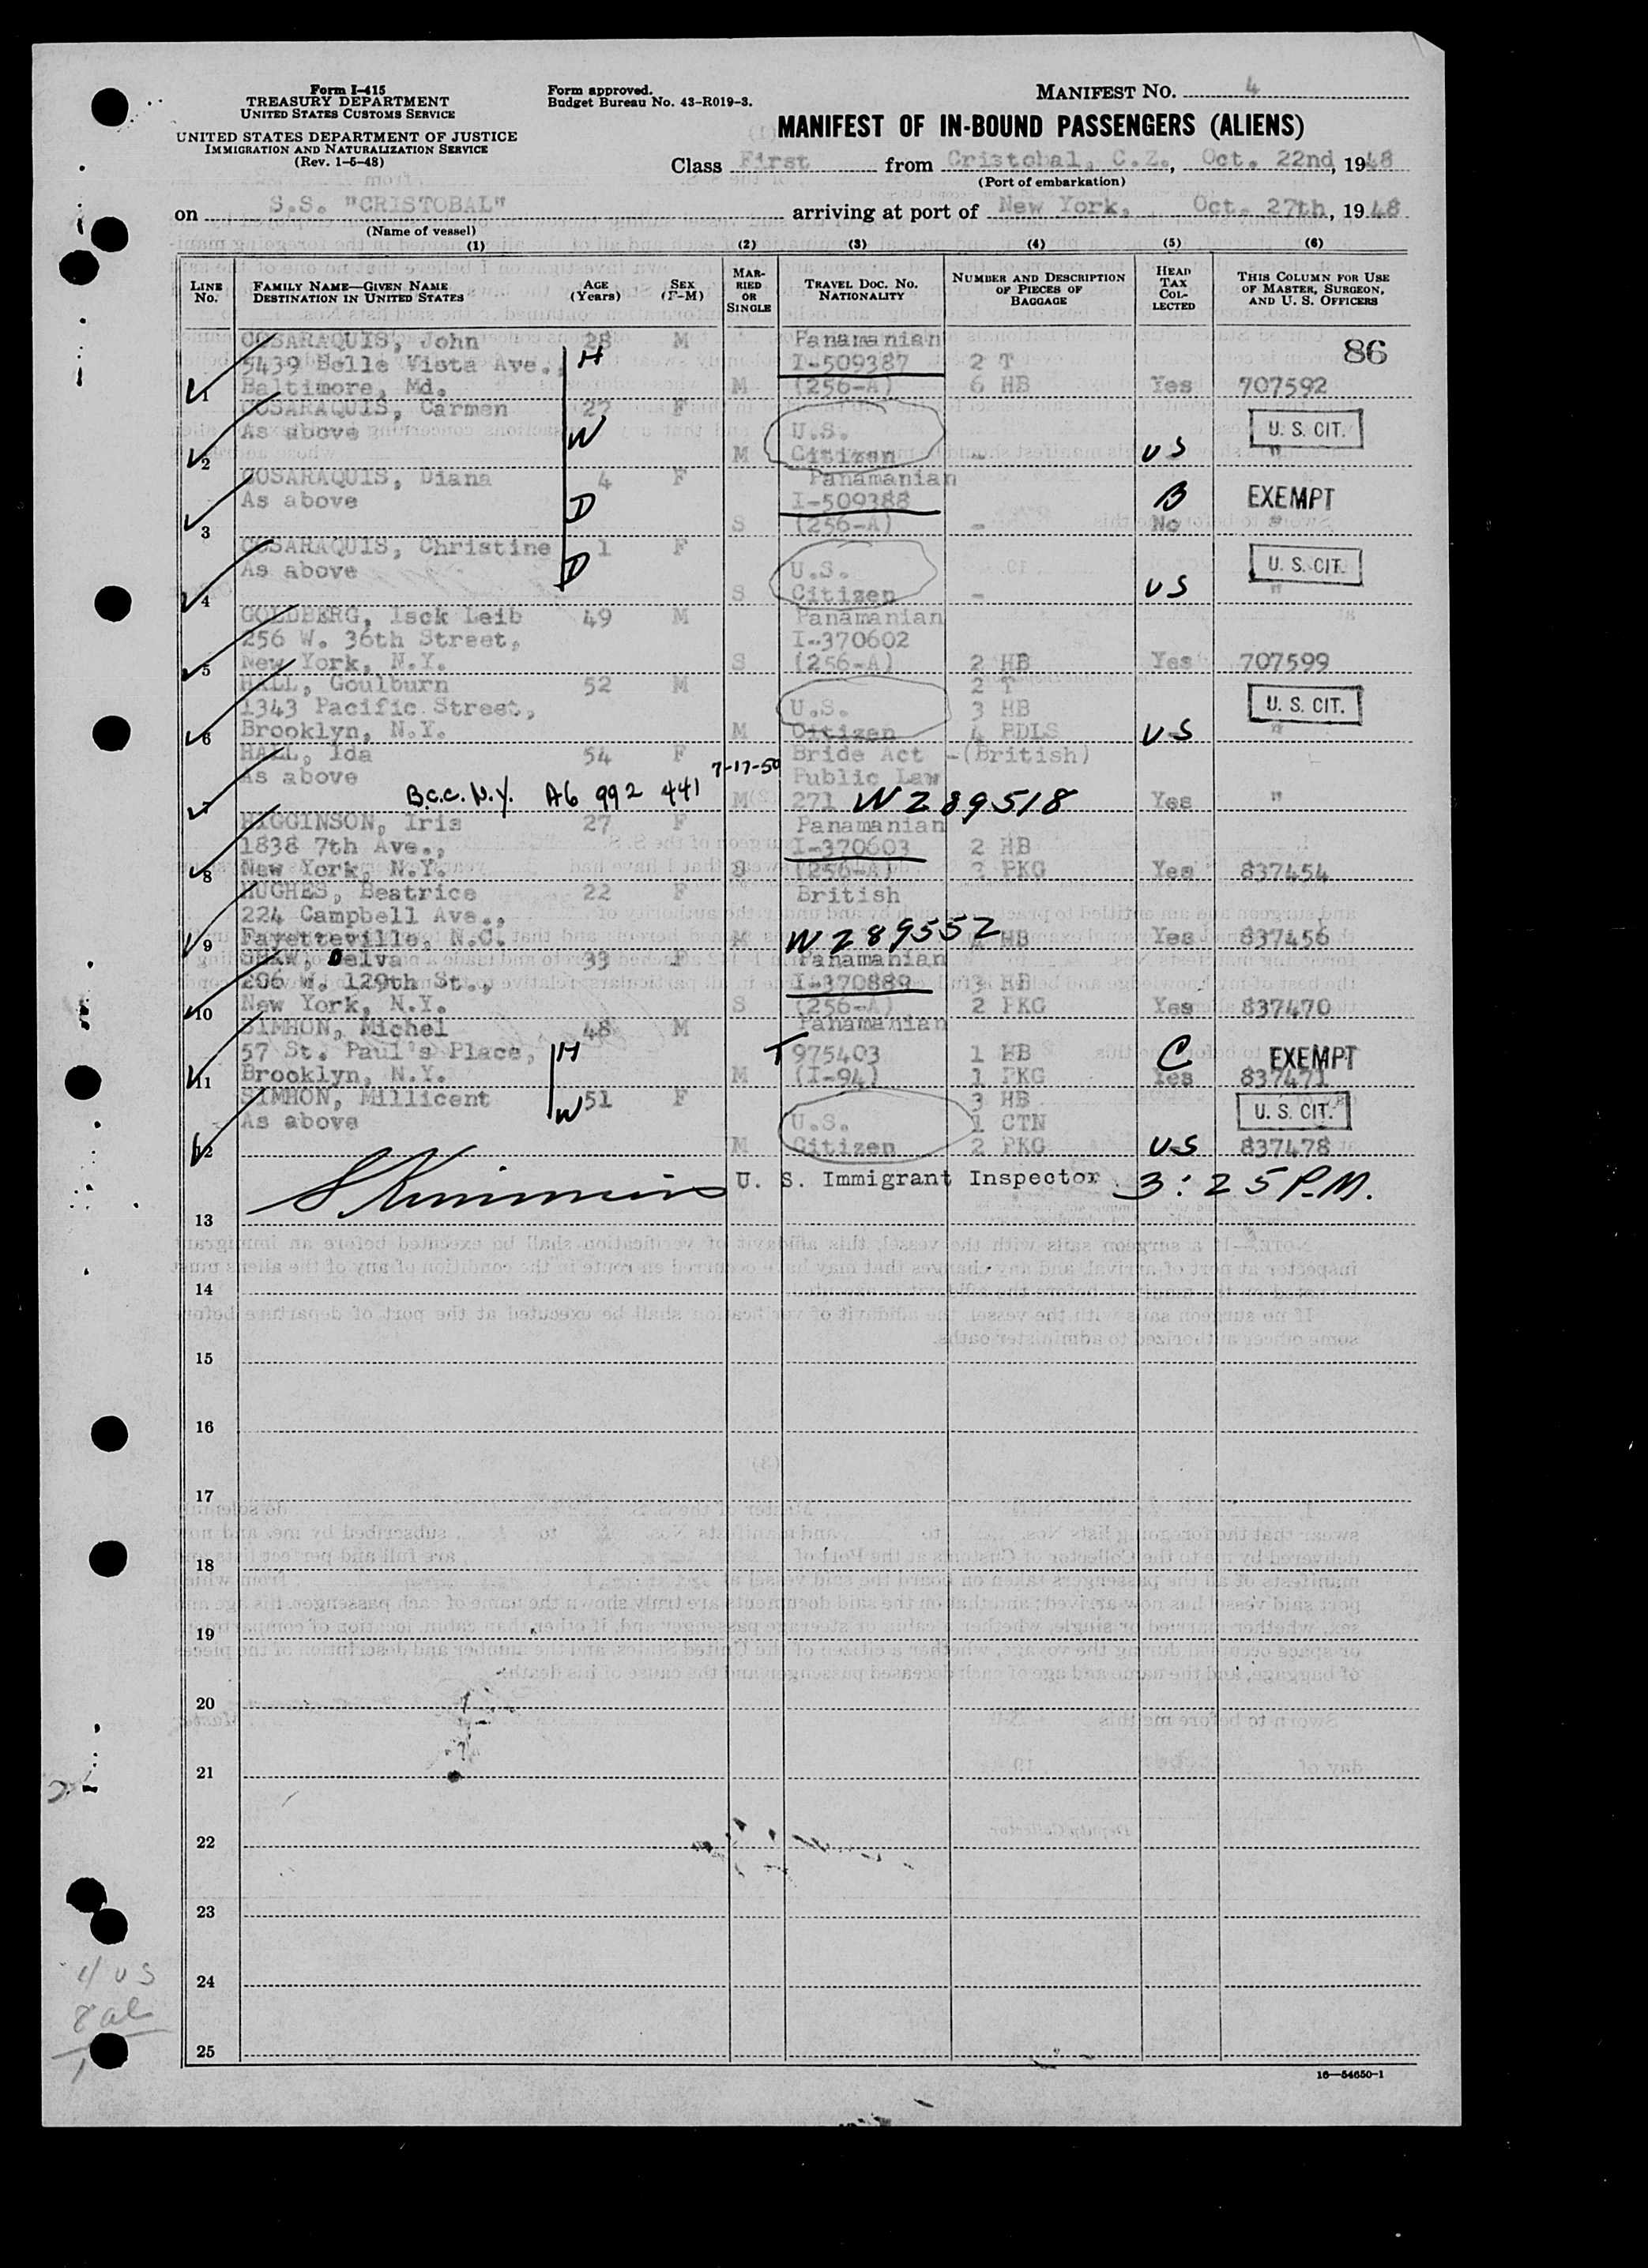 Form I-415
TREASURY DEPARTMENT
UNITED STATES CUSTOMS SERVICE
UNITED STATES DEPARTMENT OF JUSTICE
IMMIGRATION AND NATURALIZATION SERVICE
(Rev. 1-5-48)
Form approved.
Budget Bureau No. 43-R019-3.
MANIFEST NO. 4
MANIFEST OF IN-BOUND PASSENGERS (ALIENS)
Class First from Cristobal, C.Z., Oct. 22nd, 1948
(Port of embarkation)
on S.S. "CRISTOBAL" arriving at port of New York, Oct. 27th, 1948
(Name of vessel)
(1) (2) (3) (4) (5) (6)
LINE No. FAMILY NAME—GIVEN NAME DESTINATION IN UNITED STATES AGE (Years) SEX (F-M) MARRIED OR SINGLE TRAVEL DOC. NO. NATIONALITY NUMBER AND DESCRIPTION OF PIECES OF BAGGAGE HEAD TAX COLLECTED THIS COLUMN FOR USE OF MASTER, SURGEON, AND U. S. OFFICERS
COSARAQUIS, John 28 M Panamanian 86
5439 Belle Vista Ave., H I-509387 2 T
1 Baltimore, Md. M (256-A) 6 HB Yes 707592
COSARAQUIS, Carmen 27 F
As above W U.S. U. S. CIT.
2 M Citizen - US "
COSARAQUIS, Diana 4 F Panamanian
As above D I-509388 B EXEMPT
3 S (256-A) - No "
COSARAQUIS, Christine 1 F
As above D U.S. U. S. CIT.
4 S Citizen - US "
GOLDBERG, Isck Leib 49 M Panamanian
256 W. 36th Street, I-370602
5 New York, N.Y. S (256-A) 2 HB Yes 707599
HALL, Goulburn 52 M 2 T
1343 Pacific Street, U.S. 3 HB U. S. CIT.
6 Brooklyn, N.Y. M Citizen 4 BDLS US "
HALL, Ida 54 F Bride Act -(British)
As above 7-17-50 Public Law
7 B.C.C. N.Y. A6 992 441 M 271 W289518 Yes "
HIGGINSON, Iris 27 F Panamanian
1838 7th Ave., I-370603 2 HB
8 New York, N.Y. S (256-A) 3 PKG Yes 837454
HUGHES, Beatrice 22 F British
224 Campbell Ave.,
9 Fayetteville, N.C. M W289552 HB Yes 837456
SHAW, Delva 33 F Panamanian
206 W. 129th St., I-370889 3 HB
10 New York, N.Y. S (256-A) 2 PKG Yes 837470
SIMHON, Michel 48 M Panamanian
57 St. Paul's Place, H T 975403 1 HB C EXEMPT
11 Brooklyn, N.Y. M (I-94) 1 PKG Yes 837471
SIMHON, Millicent W 51 F 3 HB
As above U.S. 1 CTN U. S. CIT.
12 M Citizen 2 PKG US 837478
U. S. Immigrant Inspector 3:25 P.M.
13
14
15
16
17
18
19
20
21
22
23
24
25
4 US
8 al
16—54650-1